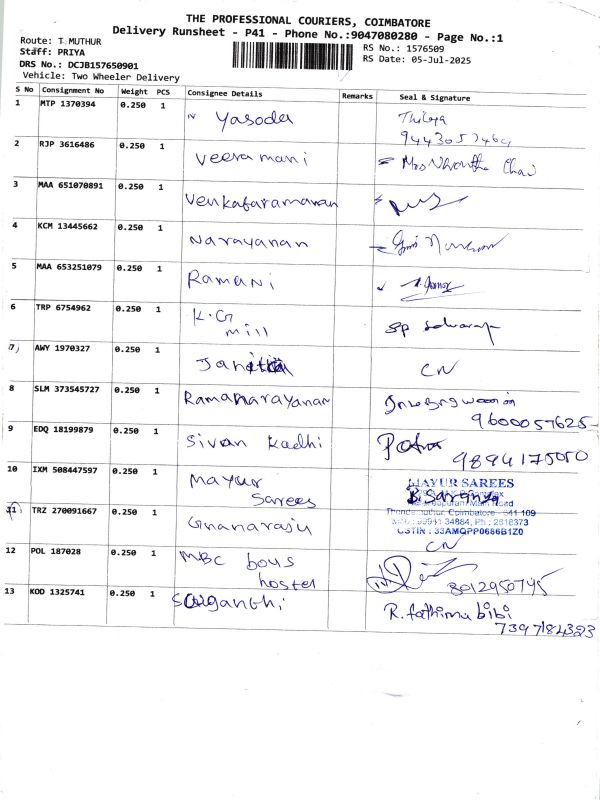 THE PROFESSIONAL COURIERS, COIMBATORE
Delivery Runsheet - P41 - Phone No.:9047080280 - Page No.:1
Route: T MUTHUR
Staff: PRIYA
DRS No.: DCJB157650901
Vehicle: Two Wheeler Delivery
RS No.: 1576509
RS Date: 05-Jul-2025
S No Consignment No Weight PCS Consignee Details Remarks Seal & Signature
1 MTP 1370394 0.250 1 Yasoda
2 RJP 3616486 0.250 1 Veeramani
3 MAA 651070891 0.250 1 Venkataramanan
4 KCM 13445662 0.250 1 Narayanan
5 MAA 653251079 0.250 1 Ramani
6 TRP 6754962 0.250 1 K.G
mill
7 AWY 1970327 0.250 1 CN
8 SLM 373545727 0.250 1 Ramanarayanan
9600057625
9 EDQ 18199879 0.250 1 Sivan Kadhi
9894175050
10 IXM 508447597 0.250 1 Mayur
Sarees
MAYUR SAREES
B. Saranya
Main Road
Coimbatore - 641 109
GSTIN : 33AMQPP0686B1Z0
11 TRZ 270091667 0.250 1 Gnanaraju CN
12 POL 187028 0.250 1 MBC boys
hostel
8012950745
13 KOD 1325741 0.250 1 R. fathima bibi
7397184323